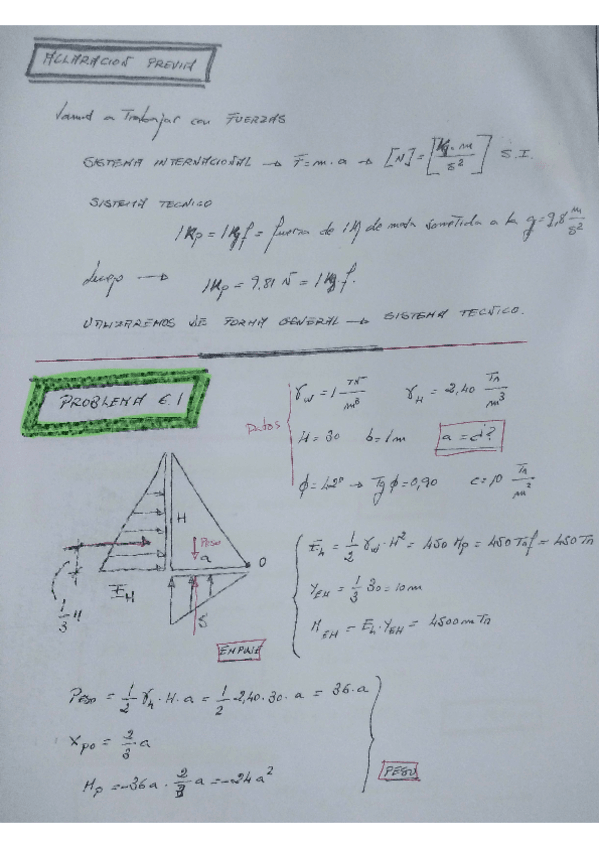 ACLARACION PREVIA
Vamos a Trabajar con FUERZAS
SISTEMA INTERNACIONAL → F = m·a → [N] = [Kg·m/s²] S.I.
SISTEMA TECNICO
1Kp = 1Kgf = fuerza de 1Kg de masa sometida a la g = 9,8 m/s²
Luego → 1Kp = 9,81 N = 1Kg·f.
UTILIZAREMOS DE FORMA GENERAL → SISTEMA TECNICO.
PROBLEMA 6.1
Datos
γw = 1 Tn/m³ γH = 2,40 Tn/m³
H = 30 b = 1m a = ¿?
ϕ = 42º → Tg ϕ = 0,90 c = 10 Tn/m²
H
PESO
a
O
EH
1/3 H
S
EMPUJE
Eh = 1/2 γw · H² = 450 Mp = 450 Tnf = 450 Tn
YEH = 1/3 30 = 10m
MEH = Eh · YEH = 4500 mTn
Peso = 1/2 γh · H · a = 1/2 2,40 · 30 · a = 36 · a
Xpo = 2/3 · a
Mp = -36a · 2/3 a = -24a²
PESO